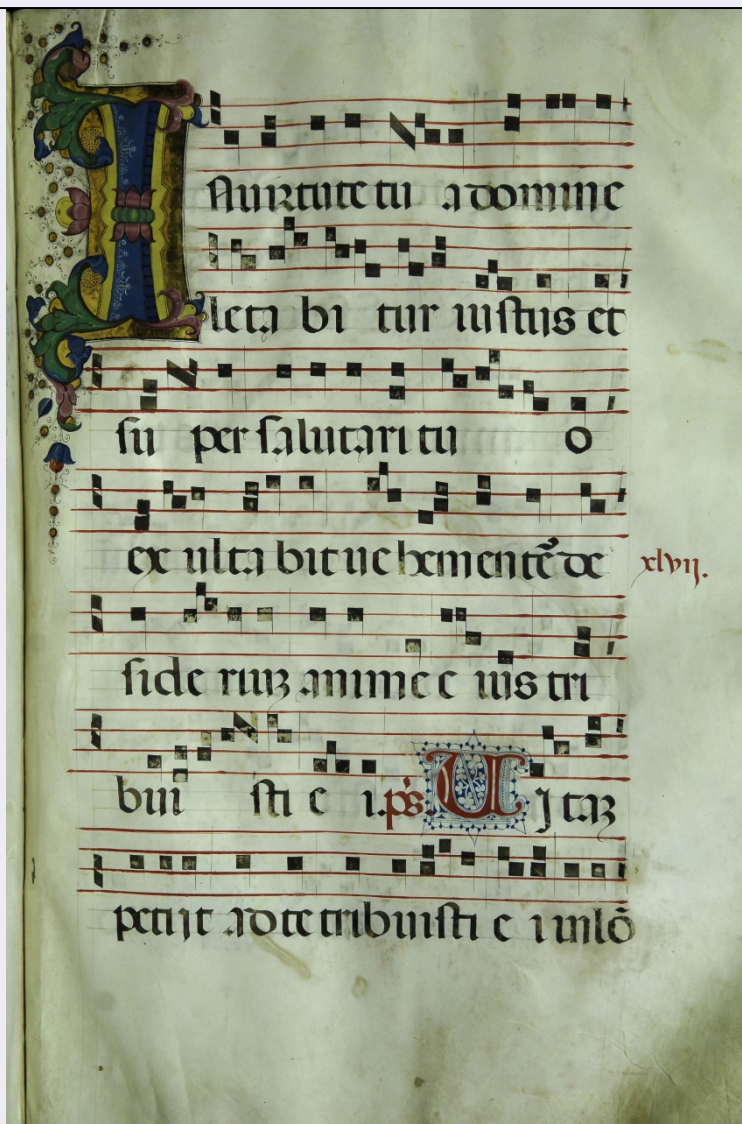 IN uirtute tu a domine
leta bi tur iustus et
su per salutari tu o
ex ulta bit ue hementē de
side riuʒ anime e ius tri
bui sti e i. p̄s UJ taʒ
petijt ad te tribuisti e i in lō
xlvij.